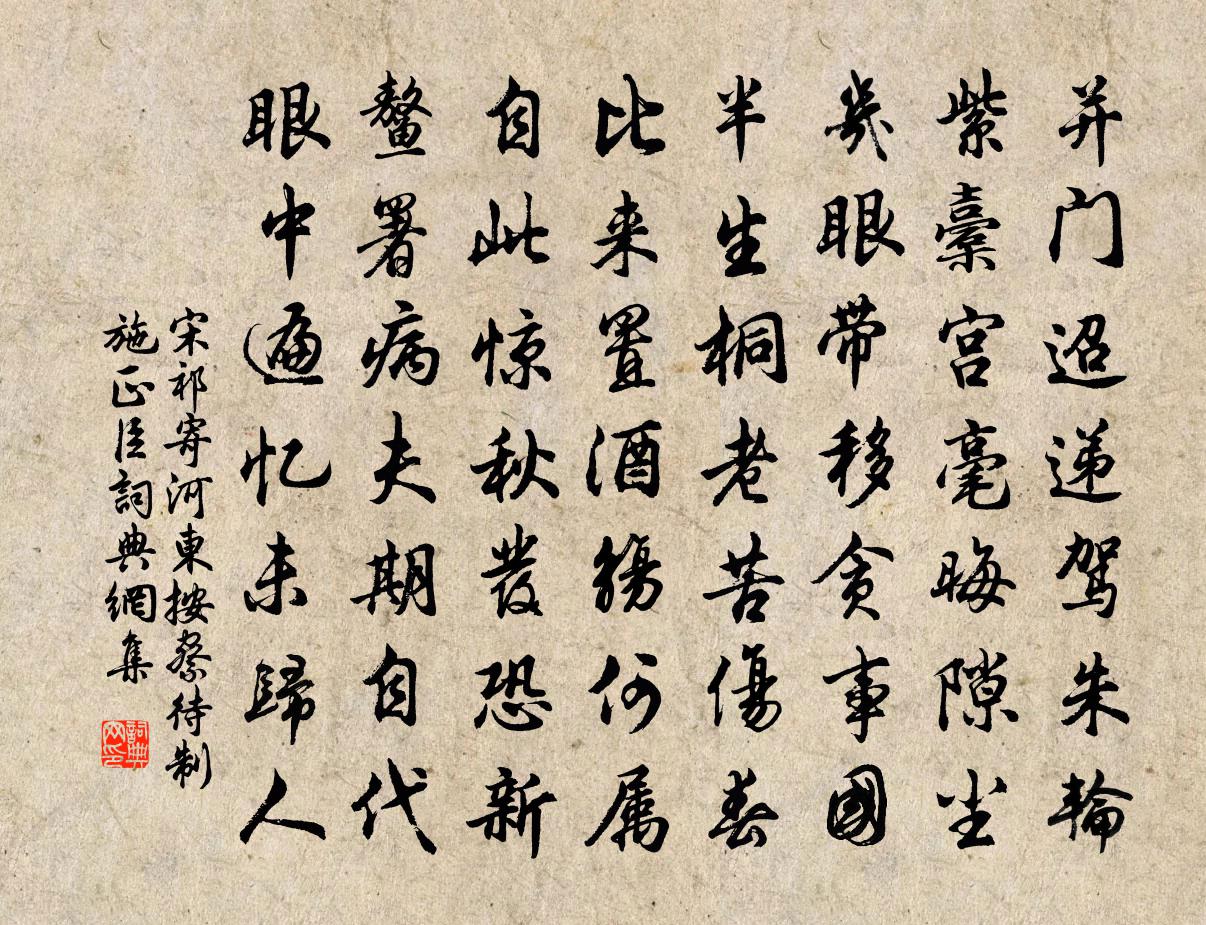 并门迢递驾朱轮
紫橐宫毫晦隙尘
幾眼带移贪事國
半生桐老苦傷春
比来置酒觴何属
自此惊秋發恐新
鳌署病夫期自代
眼中遍忆未歸人
宋祁寄河東按察待制
施正臣詞典網集
詞典网印